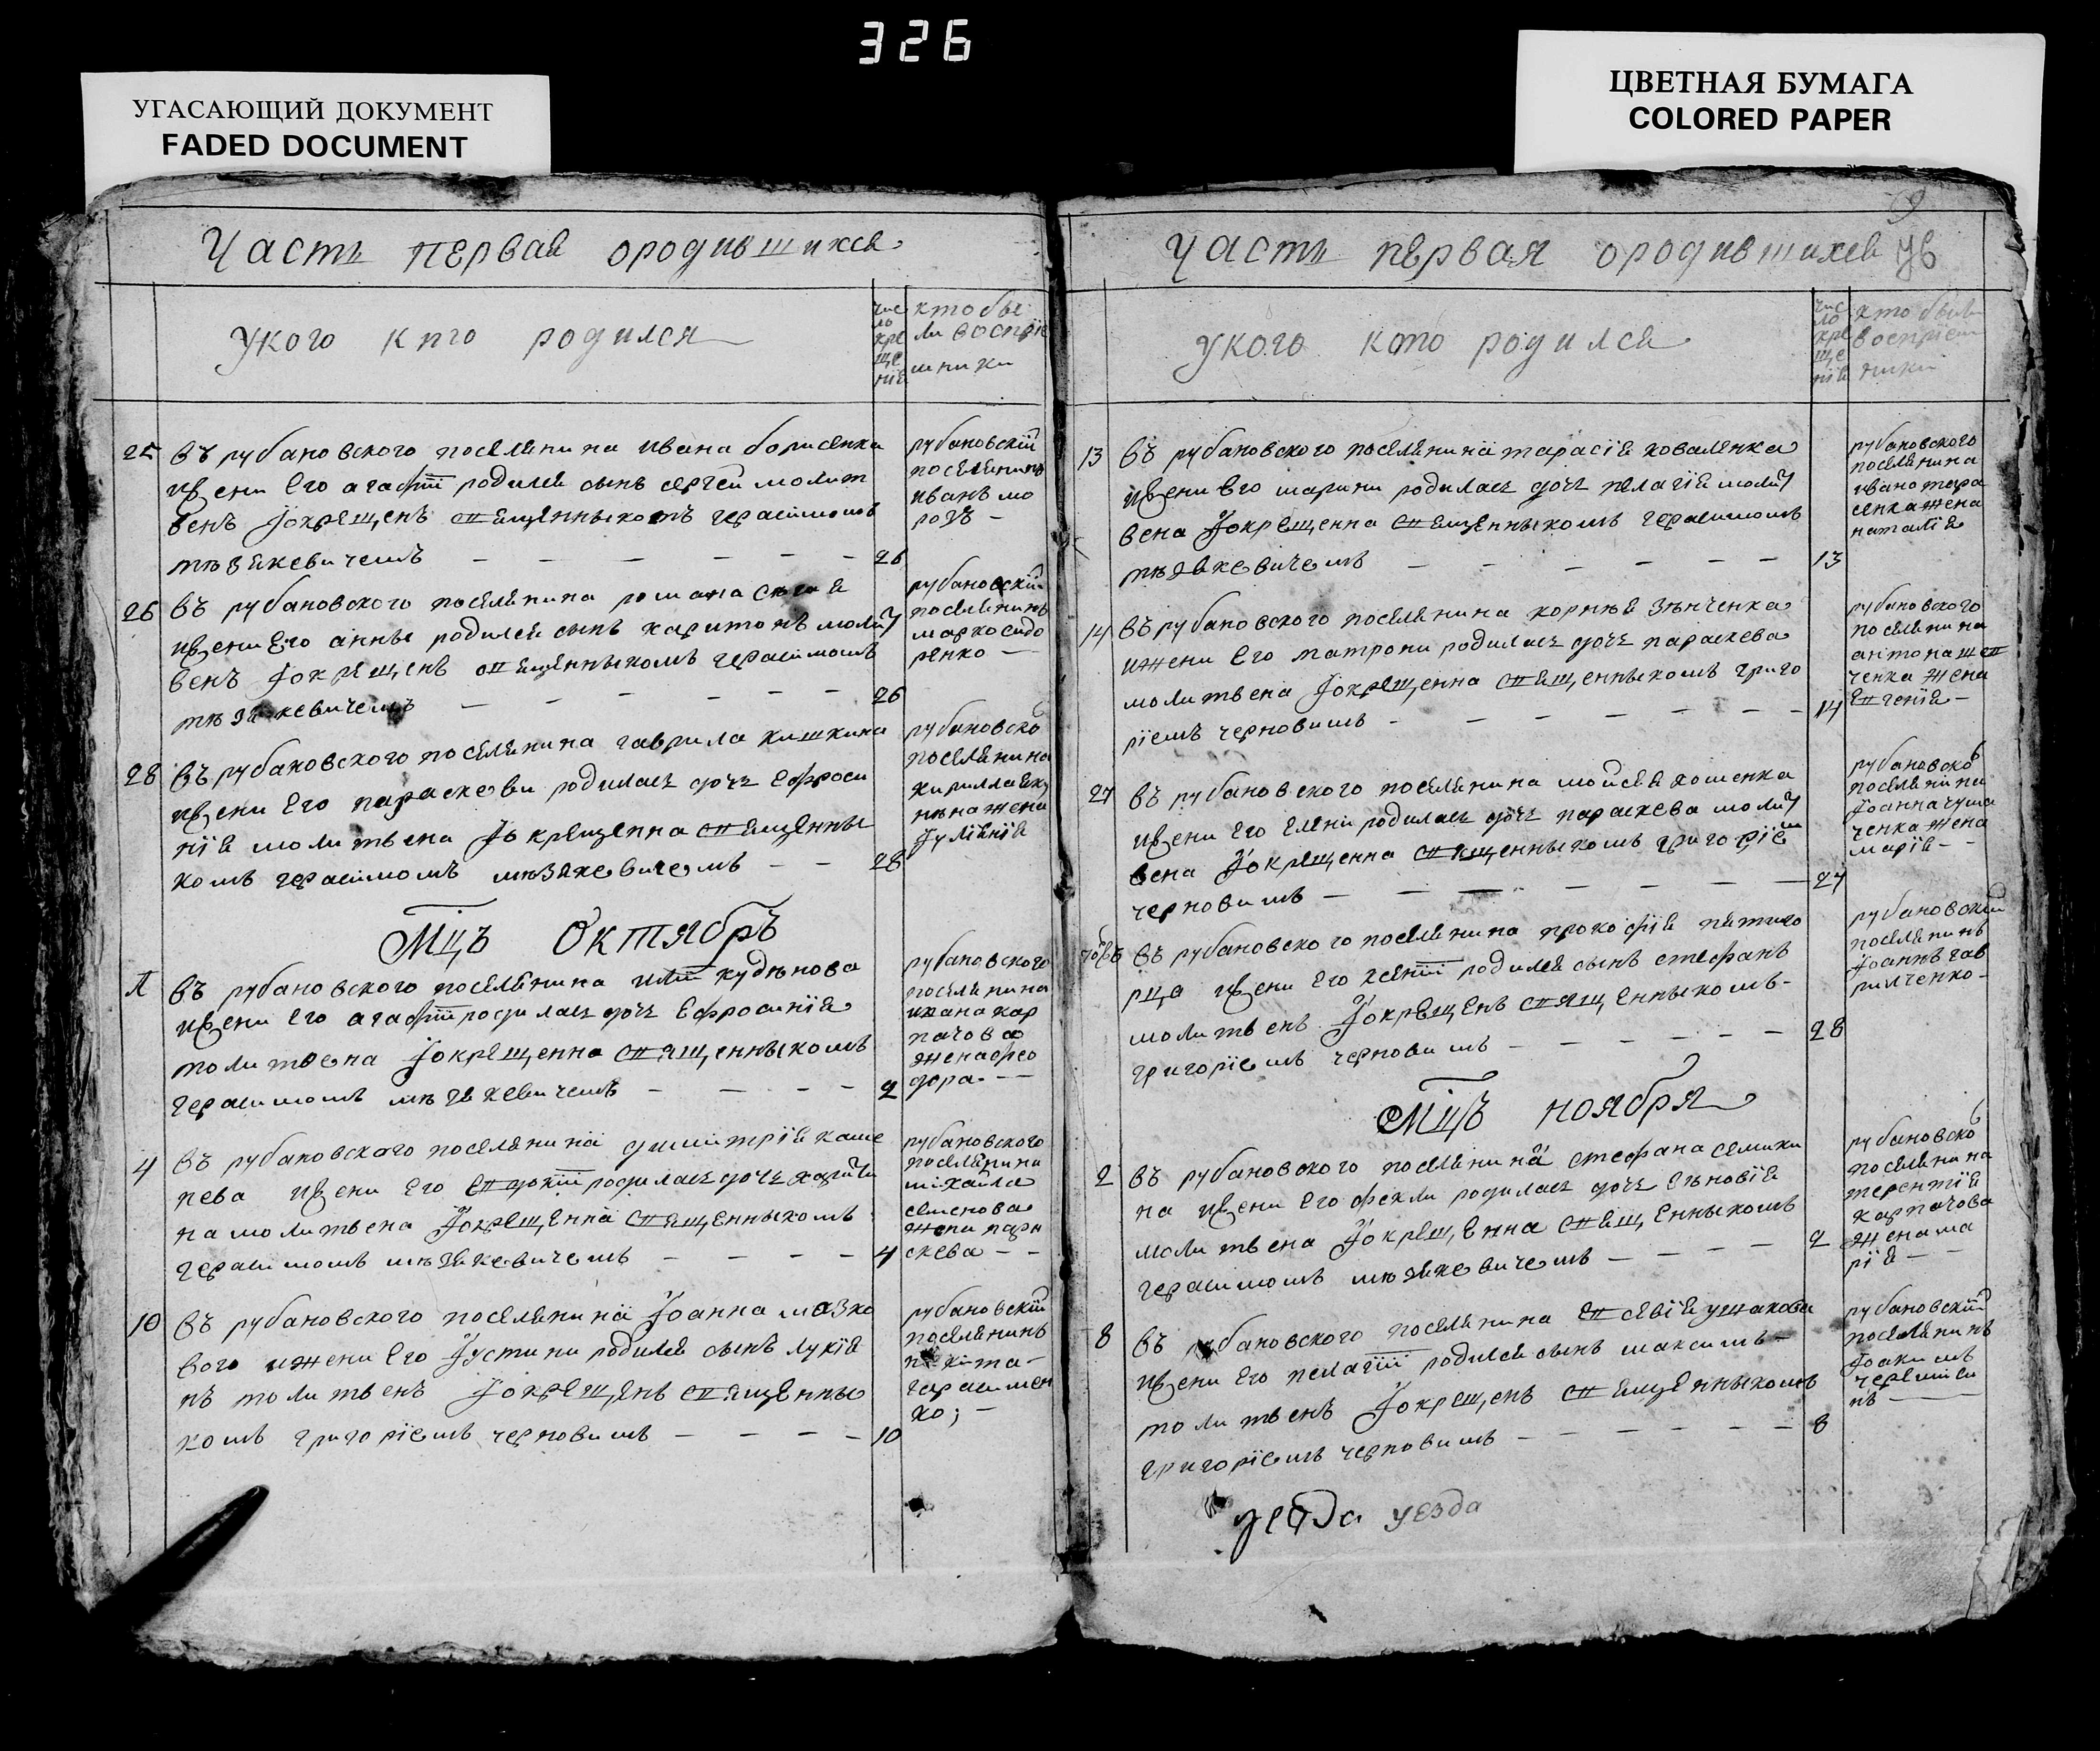 326
УГАСАЮЩИЙ ДОКУМЕНТ
FADED DOCUMENT
ЦВЕТНАЯ БУМАГА
COLORED PAPER
Часть первая ородившихся
укого кто родился
чис ло кре ще нія
кто бы
ли воспріе
мники
25 въ рубановского поселянина ивана борисенка
ижени его агафіи родился сынъ сергей молит
венъ Їокрещенъ священныкомъ герасимомъ
26
рубановскій
поселянинъ
иванъ мо
розъ –
26 въ рубановского поселянина романа
ижени его анны родился сынъ харитонъ молит
венъ Їокрещенъ священныкомъ герасимомъ
26
рубановскій
поселянинъ
марко сидо
ренко –
28 въ рубановского поселянина гаврила кишкина
ижени его параскеви родилась дочь ефроси
нія молитвена Їокрещенна священны
комъ герасимомъ – – 28
рубановско
поселянина
жена
Їулінія
Мцъ Октябръ
въ рубановского поселянина иліи кудѣнова
ижени его агафіи родилась дочь Ефросинія
молитвена Їокрещенна священныкомъ
герасимомъ – – – – 2
рубановского
поселянина
ивана кар
пачова
жена фео
дора – –
4 въ рубановского поселянина димитрія каше
нева ижени его евдокіи родилась дочь
на молитвена Їокрещенна священныкомъ
герасимомъ – – – – 4
рубановского
поселянина
михаила
семенова
жена пара
скева – –
10 въ рубановского поселянина Їоанна мазко
вого ижени его Їустини родился сынъ лукія
нъ молитвенъ Їокрещенъ священны
комъ григоріемъ черновимъ – – – – 10
рубановскій
поселянинъ
никита –
герасимен
ко; –
Часть первая ородившихся
укого кто родился
чис ло кре ще нія
кто были
воспріем
ники
13 въ рубановского поселянина тарасія коваленка
ижени его марини родилась дочь пелагія молит
вена Їокрещенна священныкомъ герасимомъ
13
рубановского
поселянина
ивана тара
сенка жена
наталія
14 въ рубановского поселянина корнѣя зѣнченка
ижени его матрони родилась дочь параскева
молитвена Їокрещенна священныкомъ григо
ріемъ черновимъ – – – – – – 14
рубановского
поселянина
антона шев
ченка жена
евгенія –
27 въ рубановского поселянина мойсея кошенка
ижени его елени родилась дочь параскева молит
вена Їокрещенна священныкомъ григоріем
черновимъ – – – – – – 27
рубановско
поселянина
Їоанна чума
ченка жена
марія – –
въ рубановского поселянина прокофія
рца ижени его ксеніи родился сынъ стефанъ
молитвенъ Їокрещенъ священныкомъ –
григоріемъ черновимъ – – – – – 28
рубановскій
поселянинъ
Їоаннъ гав
рилченко –
Мцъ ноября
2 въ рубановского поселянина стефана семики
на ижени его фекли родилась дочь зѣновія
молитвена Їокрещенна священныкомъ
герасимомъ – – – – 2
рубановско
поселянина
терентія
карпачова
жена ма
рія – –
8 въ рубановского поселянина евсевія ушакова
ижени его пелагіи родился сынъ максимъ –
молитвенъ Їокрещенъ священныкомъ
григоріемъ черновимъ – – – – – – 8
рубановскій
поселянинъ
Їоакимъ
черемиси
нъ –
уезда уезда